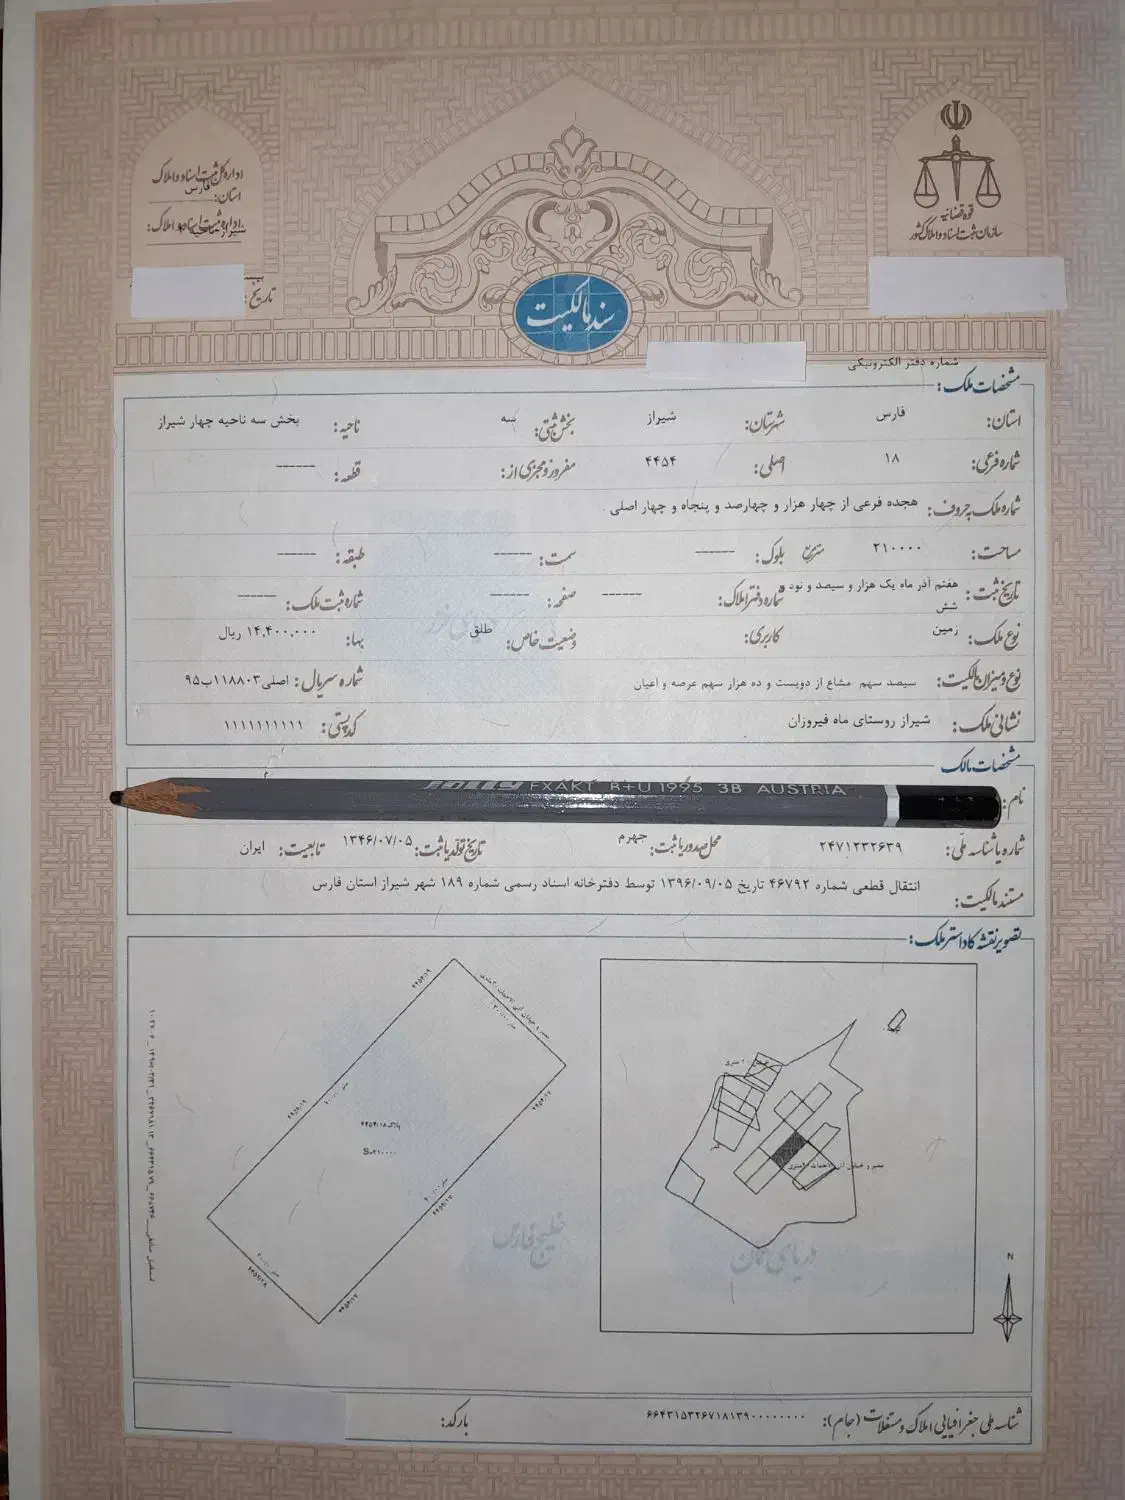 قوه قضائیه
سازمان ثبت اسناد و املاک کشور
اداره کل ثبت اسناد و املاک
استان: فارس
اداره ثبت اسناد و املاک:
تاریخ:
سند مالکیت
شماره دفتر الکترونیکی
مشخصات ملک:
استان: فارس شهرستان: شیراز بخش ثبتی: سه ناحیه: بخش سه ناحیه چهار شیراز
شماره فرعی: ۱۸ اصلی: ۴۴۵۴ مفروز و مجزی از: قطعه: ------
شماره ملک به حروف: هجده فرعی از چهار هزار و چهارصد و پنجاه و چهار اصلی .
مساحت: ۲۱۰۰۰۰ مترمربع بلوک: ------ سمت: ------ طبقه: ------
تاریخ ثبت: هفتم آذر ماه یک هزار و سیصد و نود و شش شماره دفتر املاک: ------ صفحه: ------ شماره ثبت ملک: ------
نوع ملک: زمین کاربری: وضعیت خاص: طلق بها: ۱۴,۴۰۰,۰۰۰ ریال
نوع و میزان مالکیت: سیصد سهم مشاع از دویست و ده هزار سهم عرصه و اعیان شماره سریال: اصلی۱۱۸۸۰۳ب۹۵
نشانی ملک: شیراز روستای ماه فیروزان کدپستی: ۱۱۱۱۱۱۱۱۱۱
مشخصات مالک
نام:
EXAKT B+U 1995 3B AUSTRIA
شماره یا شناسه ملی: ۲۴۷۱۲۳۲۶۳۹ محل صدور یا ثبت: جهرم تاریخ تولد یا ثبت: ۱۳۴۶/۰۷/۰۵ تابعیت: ایران
مستند مالکیت: انتقال قطعی شماره ۴۶۷۹۲ تاریخ ۱۳۹۶/۰۹/۰۵ توسط دفترخانه اسناد رسمی شماره ۱۸۹ شهر شیراز استان فارس
تصویر نقشه کاداستر ملک:
پلاک ۴۴۵۴/۱۸
S=۲۱۰۰۰۰
N
خلیج فارس
دریای عمان
شناسه ملی جغرافیایی املاک و مستغلات (جام): ۶۶۴۳۱۵۳۲۶۷۱۸۱۳۹۰۰۰۰۰۰۰۰ بارکد: